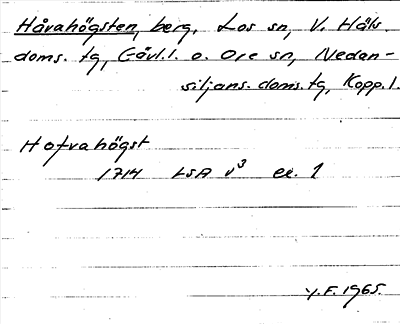 Håvahögsten, berg, Los sn, V. Häls.
doms. tg, Gävl.l. o. Ore sn, Nedan-
siljans. doms. tg, Kopp.l.
Hofvahögst
1714 LSA v³ ee. 1
Y.F. 1965.